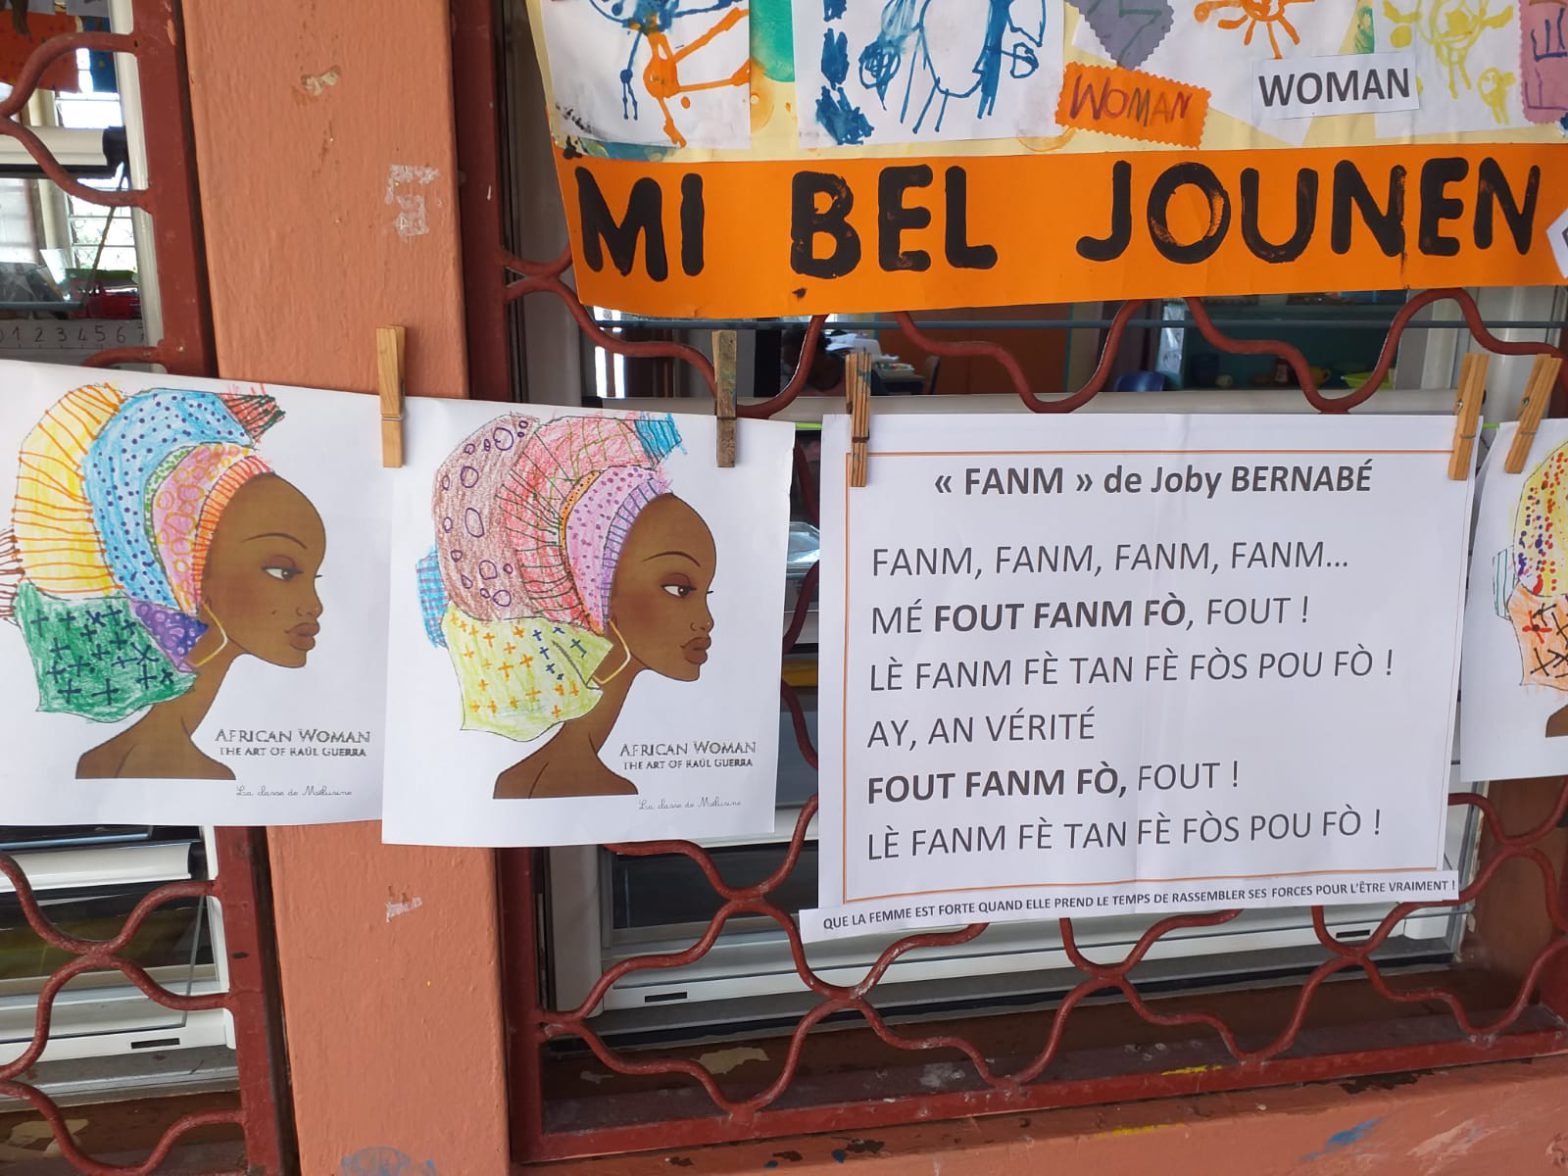 WOMAN
WOMAN
MI BEL JOUNEN
0 1 2 3 4 5 6
« FANM » de Joby BERNABÉ
FANM, FANM, FANM, FANM...
MÉ FOUT FANM FÒ, FOUT !
LÈ FANM FÈ TAN FÈ FÒS POU FÒ !
AY, AN VÉRITÉ
FOUT FANM FÒ, FOUT !
LÈ FANM FÈ TAN FÈ FÒS POU FÒ !
QUE LA FEMME EST FORTE QUAND ELLE PREND LE TEMPS DE RASSEMBLER SES FORCES POUR L'ÊTRE VRAIMENT !
AFRICAN WOMAN
THE ART OF RAÜL GUERRA
La classe de Mélusine
AFRICAN WOMAN
THE ART OF RAÜL GUERRA
La classe de Mélusine